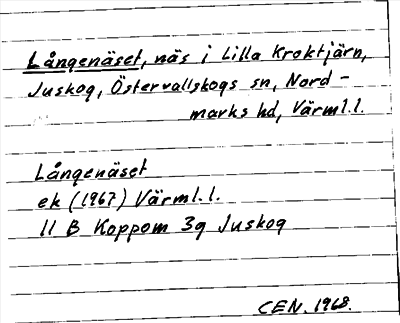 Långenäset, näs i Lilla Kroktjärn,
Juskog, Östervallskogs sn, Nord-
marks hd, Värml.l.
Långenäset
ek (1967) Värml.l.
11 B Koppom 3g Juskog
CEN. 1968.